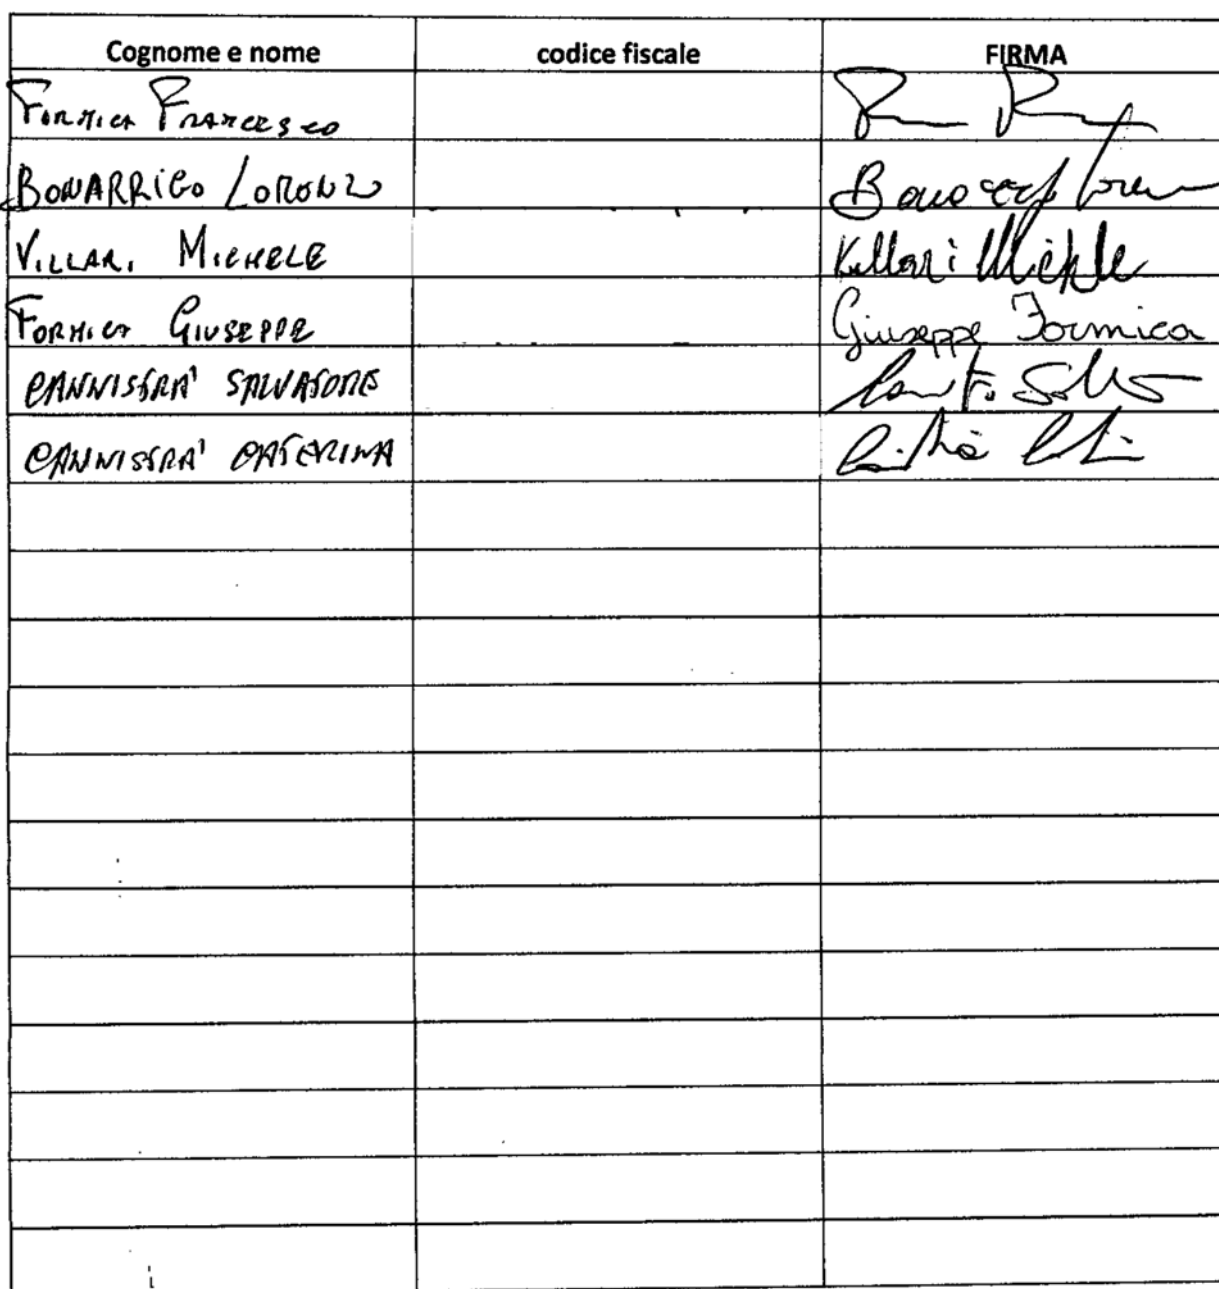 Cognome e nome codice fiscale FIRMA
FORMICA FRANCESCO
BONARRIGO LORENZO Bonarrigo Loren
VILLARI MICHELE Villari Michele
FORMICA GIUSEPPE Giuseppe Formica
CANNISTRA' SALVATORE
CANNISTRA' CATERINA